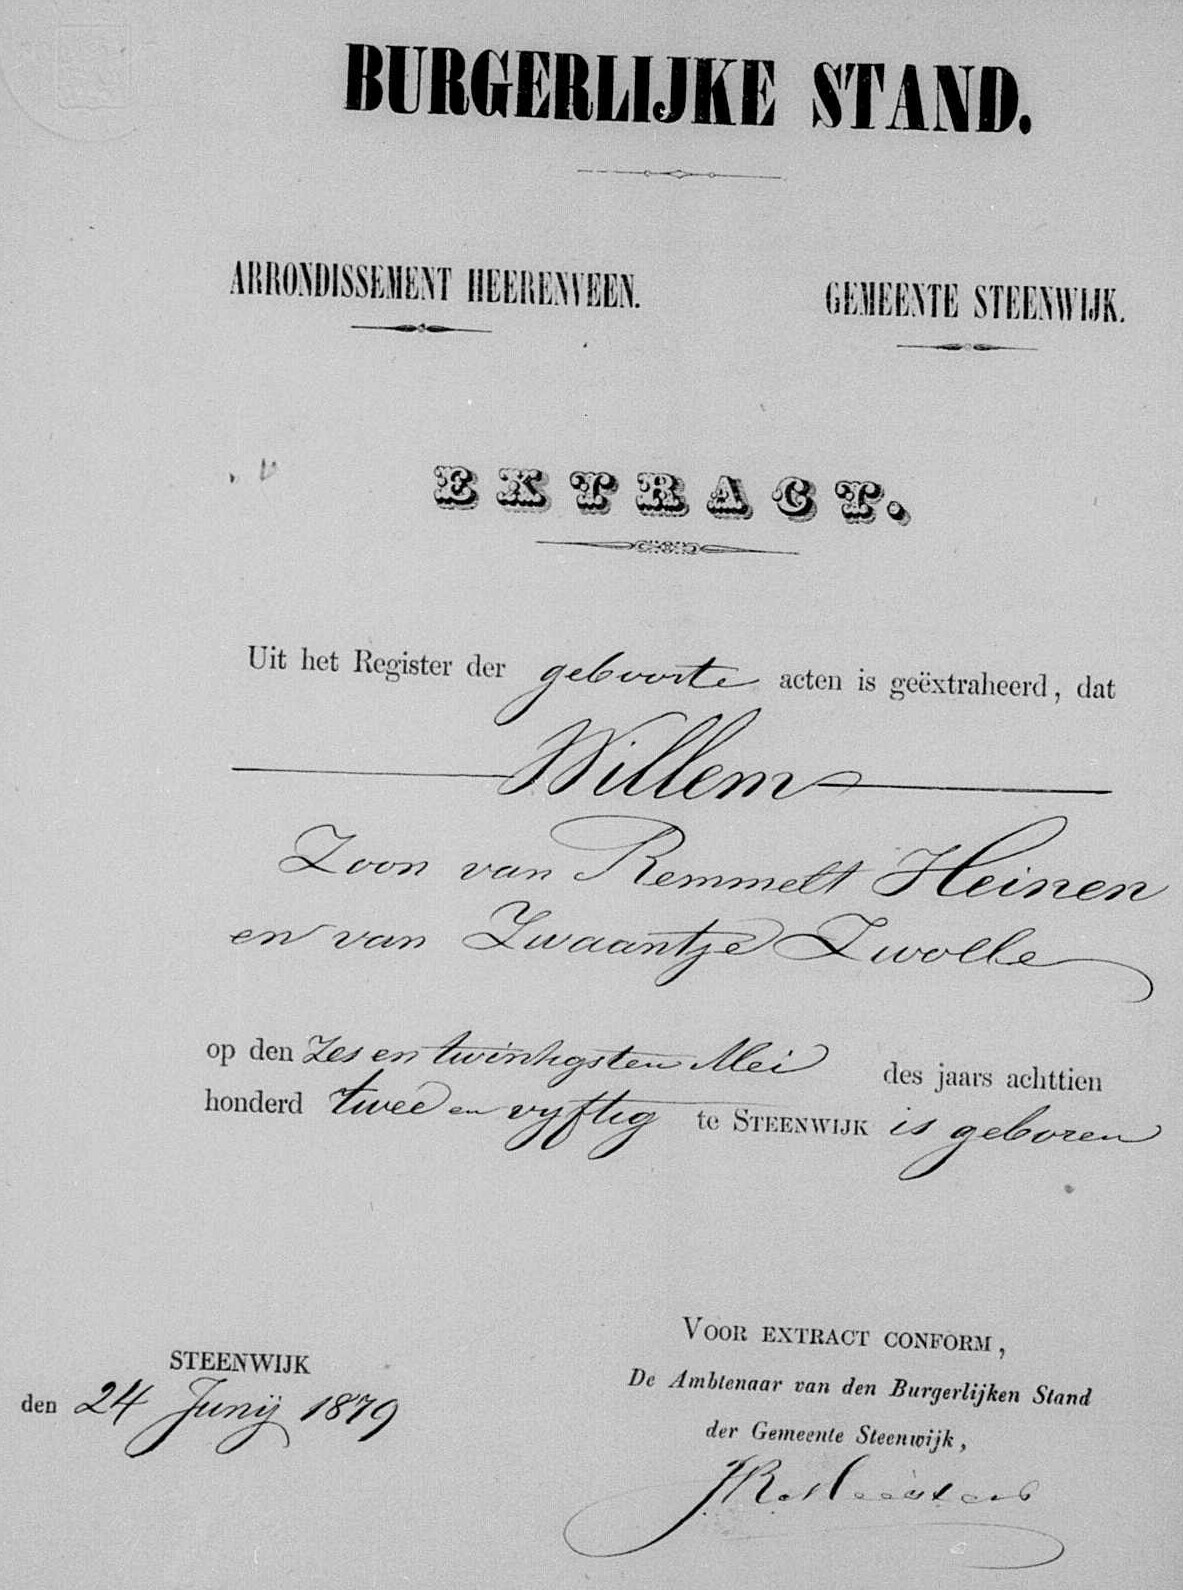 BURGERLIJKE STAND.
ARRONDISSEMENT HEERENVEEN.
GEMEENTE STEENWIJK.
EXTRACT.
Uit het Register der geboorte acten is geëxtraheerd, dat
Willem
Zoon van Remmelt Heinen
en van Zwaantje Zwolle
op den Zes en twintigsten Mei des jaars achttien
honderd twee en vyftig te STEENWIJK is geboren
STEENWIJK
den 24 Junij 1879
VOOR EXTRACT CONFORM,
De Ambtenaar van den Burgerlijken Stand
der Gemeente Steenwijk,